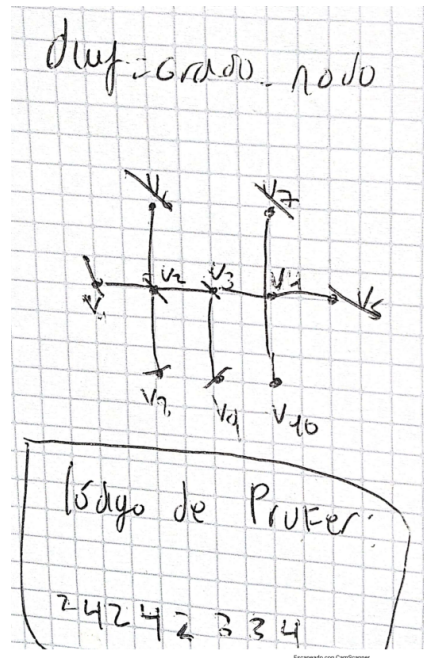 grado - nodo
V6 V7
V1 V2 V3 V4 V5
V9 V10
Código de Prufer:
2 4 2 4 2 3 3 4
Escaneado con CamScanner